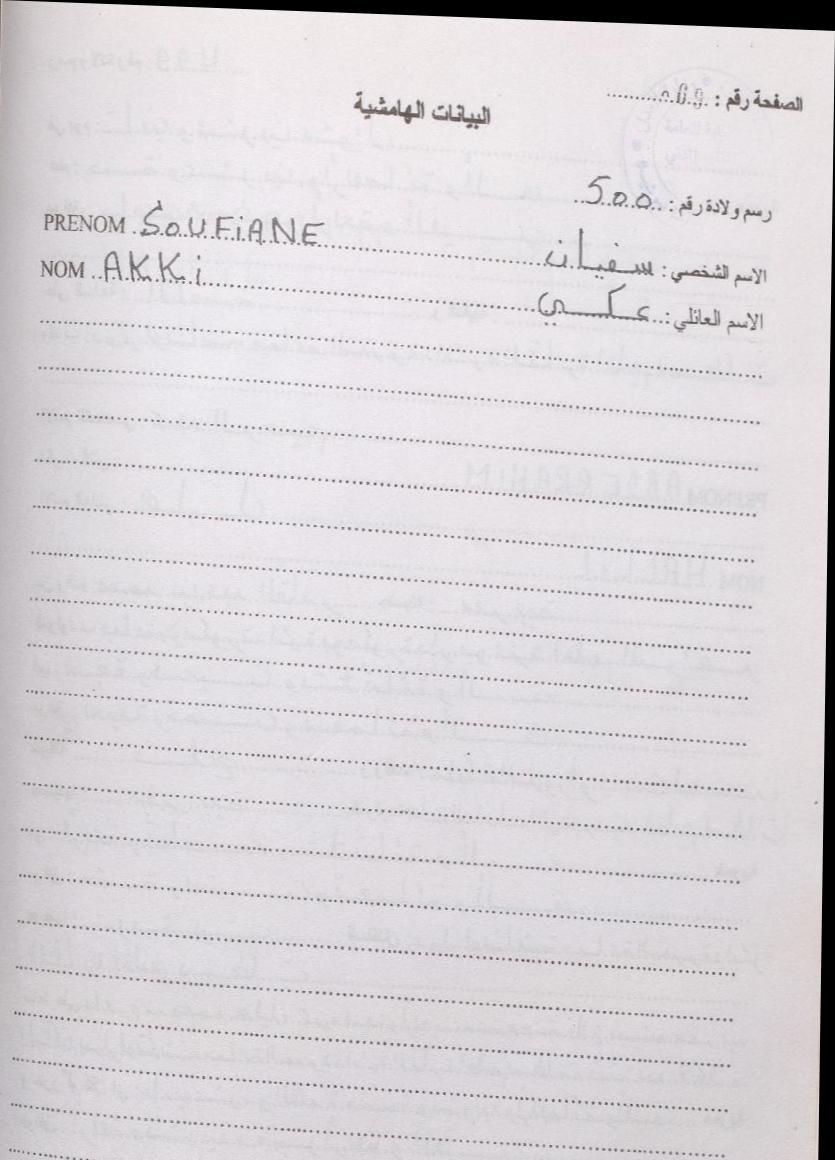 الصفحة رقم :
البيانات الهامشية
رسم ولادة رقم : 500
PRENOM SOUFIANE الاسم الشخصي : سفيان
NOM AKKi الاسم العائلي : عكي